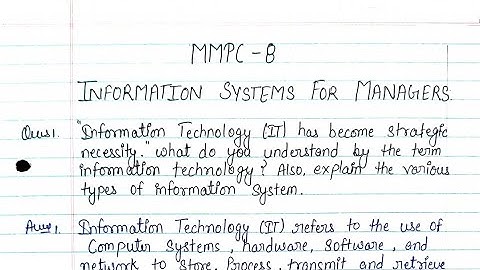 MMPC-8
INFORMATION SYSTEMS FOR MANAGERS.
Ques1. "Information Technology (IT) has become strategic
necessity." What do you understand by the term
information technology? Also, explain the various
types of information system.
Ans1. Information Technology (IT) refers to the use of
Computer Systems, hardware, Software, and
network to store, Process, transmit and retrieve